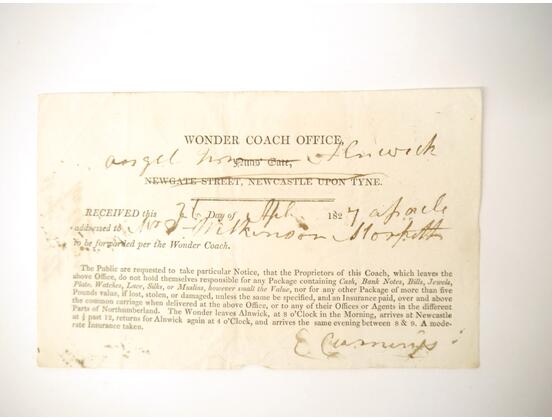 WONDER COACH OFFICE,
angel Inn Alnwick
Nuns' Gate,
NEWGATE-STREET, NEWCASTLE UPON TYNE.
RECEIVED this 26 Day of Apl 1827 a parcle
addressed to Mr Wilkinson Morpeth
to be forwarded per the Wonder Coach.
The Public are requested to take particular Notice, that the Proprietors of this Coach, which leaves the
above Office, do not hold themselves responsible for any Package containing Cash, Bank Notes, Bills, Jewels,
Plate, Watches, Lace, Silks, or Muslins, however small the Value, nor for any other Package of more than five
Pounds value, if lost, stolen, or damaged, unless the same be specified, and an Insurance paid, over and above
the common carriage when delivered at the above Office, or to any of their Offices or Agents in the different
Parts of Northumberland. The Wonder leaves Alnwick, at 8 o'Clock in the Morning, arrives at Newcastle
at ½ past 12, returns for Alnwick again at 4 o'Clock, and arrives the same evening between 8 & 9. A mode-
rate Insurance taken.
E Cummings